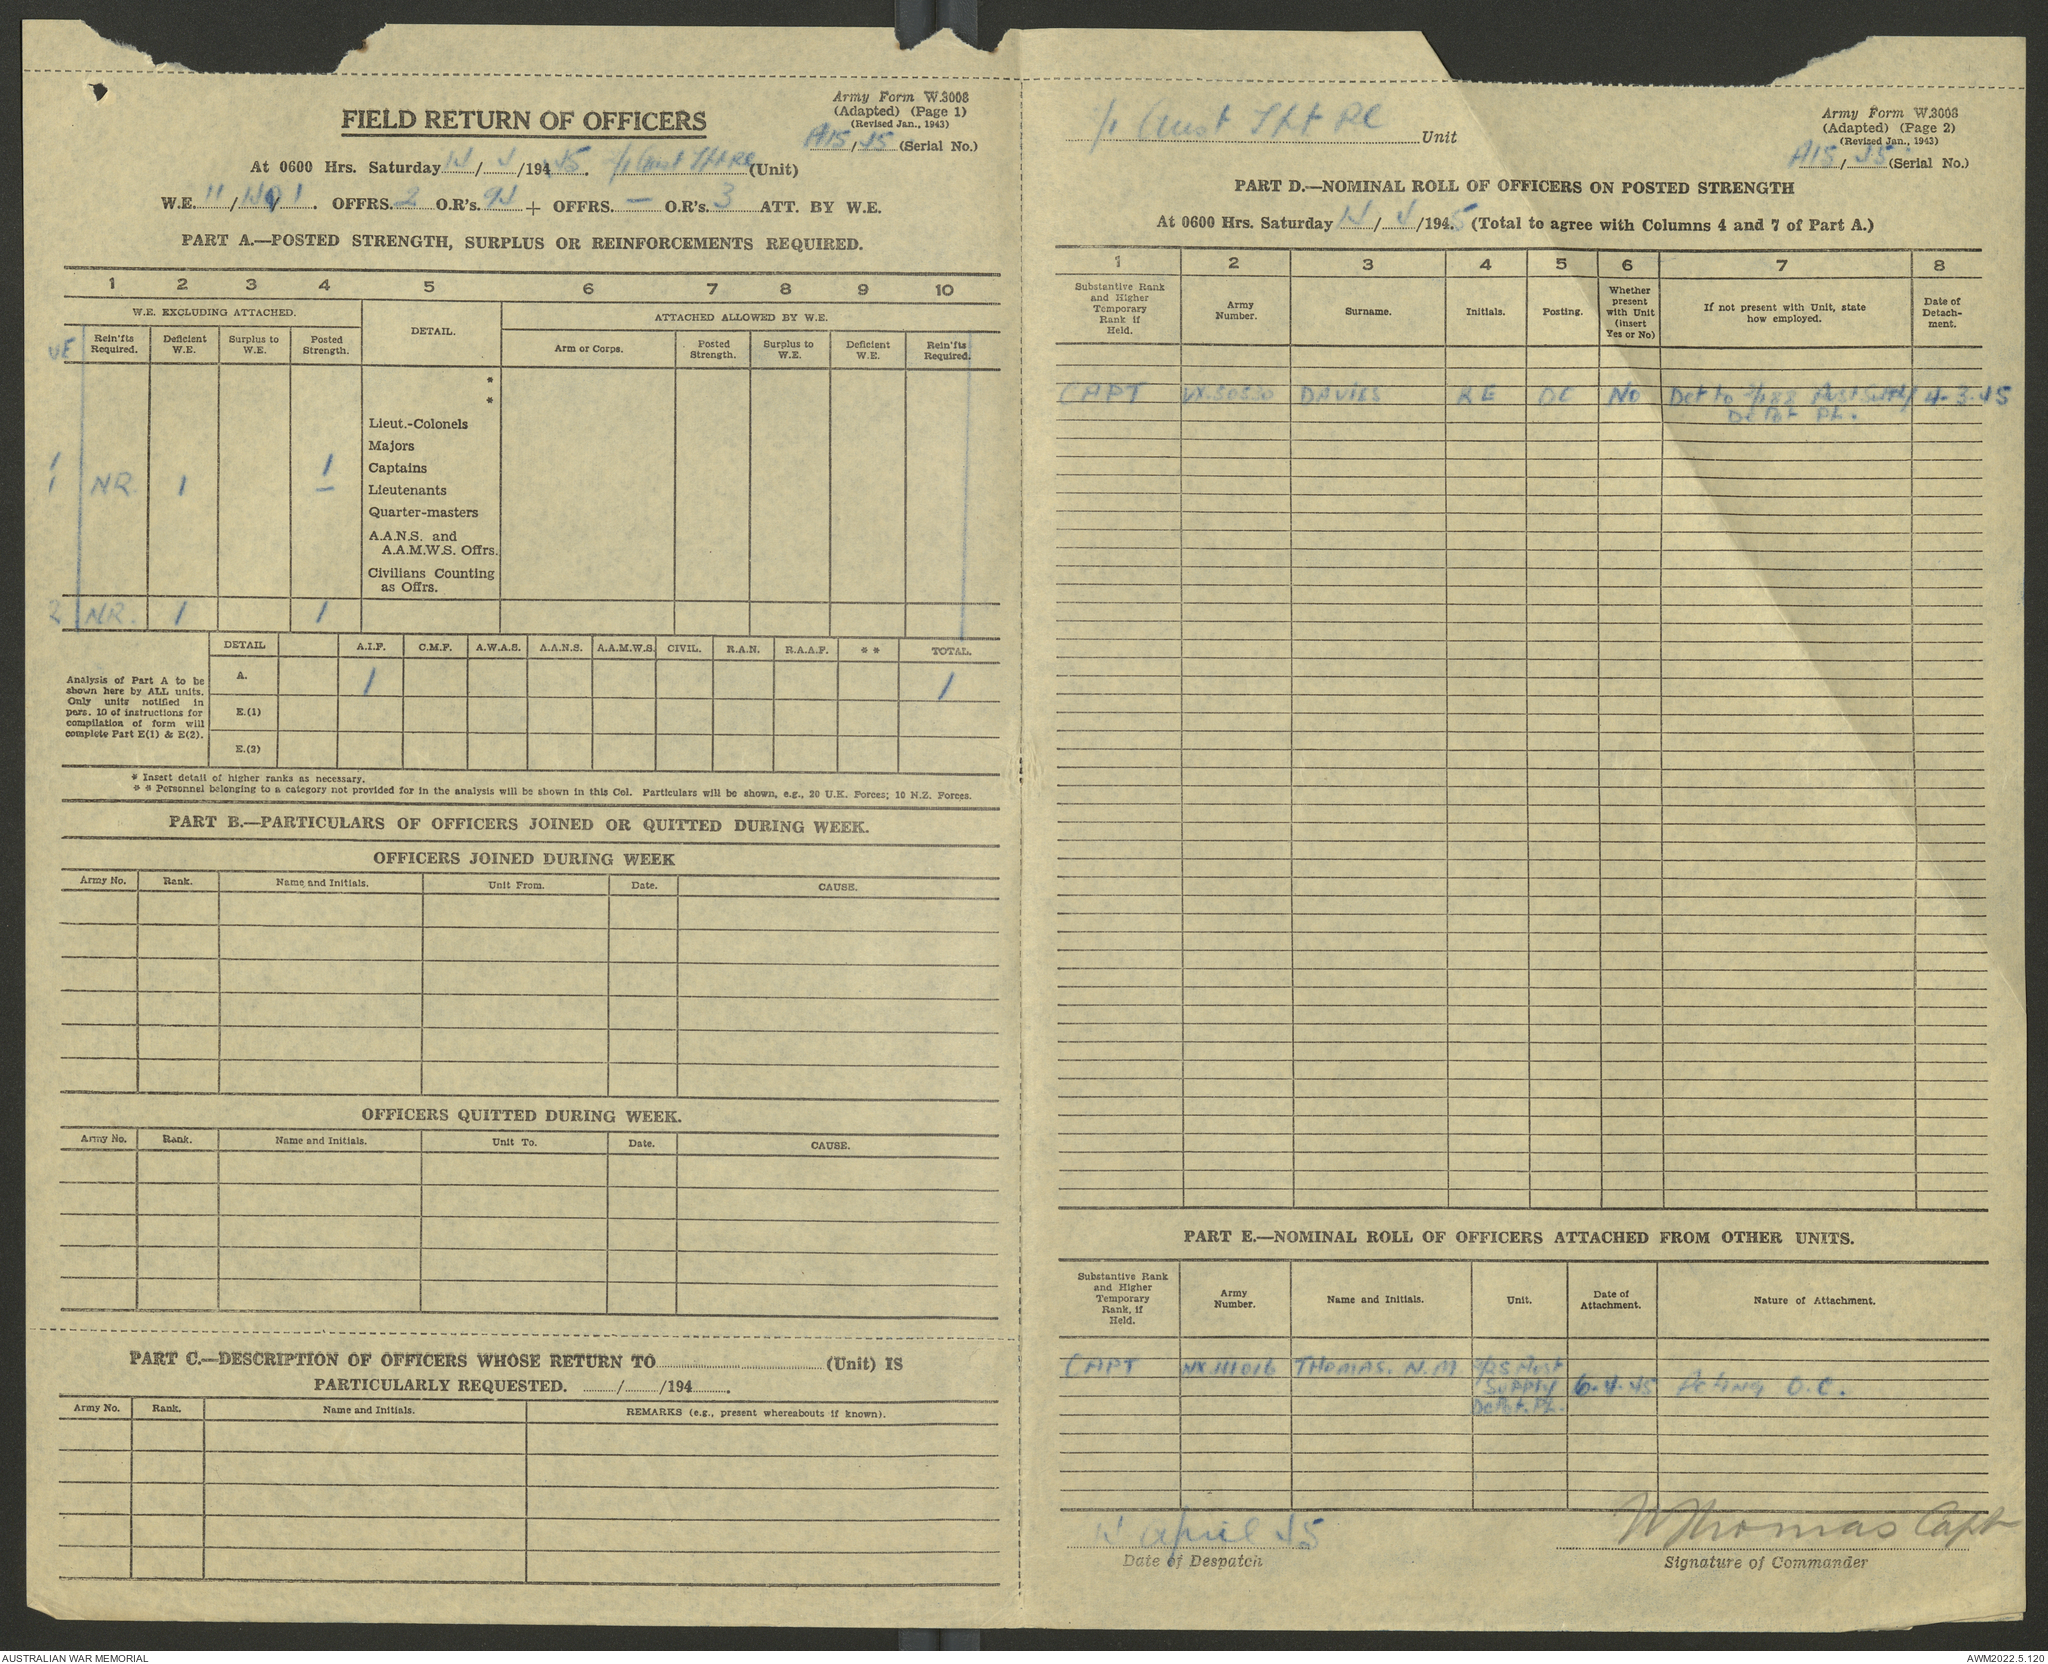 Army Form W.3008
(Adapted) (Page 1)
(Revised Jan., 1943)
A15/45 (Serial No.)
FIELD RETURN OF OFFICERS
At 0600 Hrs. Saturday 14/4/1945. 2/1 Aust (Unit)
W.E. 11/ / . OFFRS. 2 O.R's. 94 + OFFRS. — O.R's. 3 ATT. BY W.E.
PART A.—POSTED STRENGTH, SURPLUS OR REINFORCEMENTS REQUIRED.
1 2 3 4 5 6 7 8 9 10
W.E. EXCLUDING ATTACHED.
DETAIL.
ATTACHED ALLOWED BY W.E.
Rein'fts Required. Deficient W.E. Surplus to W.E. Posted Strength. Arm or Corps. Posted Strength. Surplus to W.E. Deficient W.E. Rein'fts Required.
*
*
Lieut.-Colonels
Majors
1 1 Captains
1 NR 1 — Lieutenants
Quarter-masters
A.A.N.S. and
A.A.M.W.S. Offrs.
Civilians Counting
as Offrs.
2 NR. 1 1
DETAIL A.I.F. C.M.F. A.W.A.S. A.A.N.S. A.A.M.W.S. CIVIL. R.A.N. R.A.A.F. * * TOTAL.
Analysis of Part A to be
shown here by ALL units.
Only units notified in
para. 10 of instructions for
compilation of form will
complete Part E(1) & E(2).
A. 1 1
E.(1)
E.(2)
* Insert detail of higher ranks as necessary.
* * Personnel belonging to a category not provided for in the analysis will be shown in this Col. Particulars will be shown, e.g., 20 U.K. Forces; 10 N.Z. Forces.
PART B.—PARTICULARS OF OFFICERS JOINED OR QUITTED DURING WEEK.
OFFICERS JOINED DURING WEEK
Army No. Rank. Name and Initials. Unit From. Date. CAUSE.
OFFICERS QUITTED DURING WEEK.
Army No. Rank. Name and Initials. Unit To. Date. CAUSE.
PART C.—DESCRIPTION OF OFFICERS WHOSE RETURN TO (Unit) IS
PARTICULARLY REQUESTED. / /194 .
Army No. Rank. Name and Initials. REMARKS (e.g., present whereabouts if known).
2/1 Aust Unit
Army Form W.3008
(Adapted) (Page 2)
(Revised Jan., 1943)
A15/45 (Serial No.)
PART D.—NOMINAL ROLL OF OFFICERS ON POSTED STRENGTH
At 0600 Hrs. Saturday 14/4/1945 (Total to agree with Columns 4 and 7 of Part A.)
1 2 3 4 5 6 7 8
Substantive Rank and Higher Temporary Rank if Held. Army Number. Surname. Initials. Posting. Whether present with Unit (insert Yes or No) If not present with Unit, state how employed. Date of Detach-ment.
CAPT DAVIES RE OC No Det to 2/188 Aust Supply 4.3.45
Depot PL.
PART E.—NOMINAL ROLL OF OFFICERS ATTACHED FROM OTHER UNITS.
Substantive Rank and Higher Temporary Rank, if Held. Army Number. Name and Initials. Unit. Date of Attachment. Nature of Attachment.
CAPT THOMAS. N.M. 2/25 Aust
Supply 6.4.45 Acting O.C.
Depot. PL.
14 April 45
Date of Despatch
N Thomas Capt
Signature of Commander
AUSTRALIAN WAR MEMORIAL
AWM2022.5.120